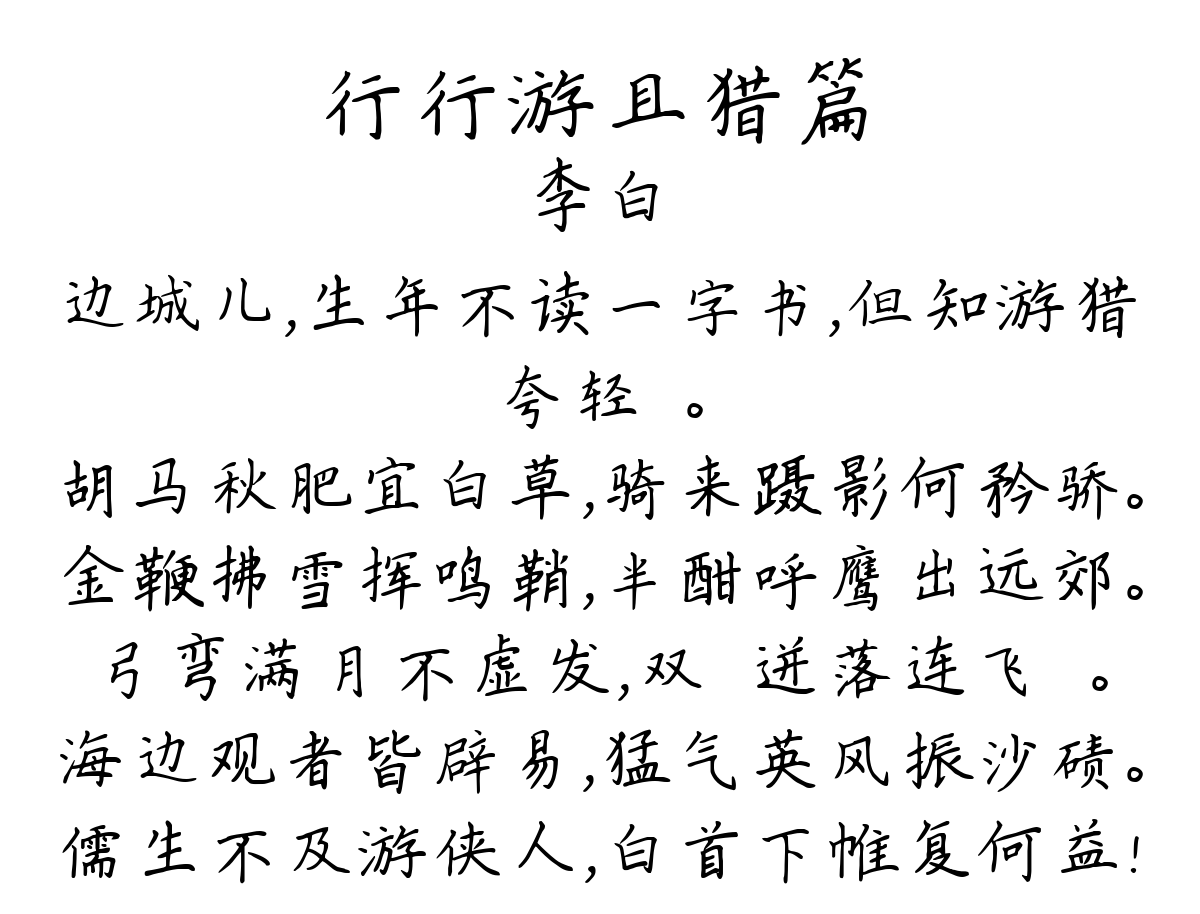 行行游且猎篇
李白
边城儿,生年不读一字书,但知游猎
夸轻 。
胡马秋肥宜白草,骑来蹑影何矜骄。
金鞭拂雪挥鸣鞘,半酣呼鹰出远郊。
弓弯满月不虚发,双 迸落连飞 。
海边观者皆辟易,猛气英风振沙碛。
儒生不及游侠人,白首下帷复何益!